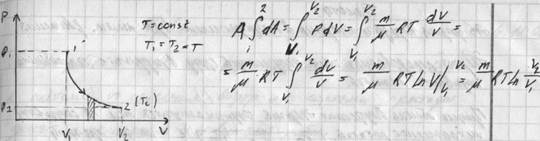 P
T=const
T₁=T₂=T
P₁
1
P₂
2 (T₂)
V₁
V₂
V
A∫₁²dA=∫_{V₁}^{V₂}PdV=∫_{V₁}^{V₂} m/μ RT dV/V =
= m/μ RT ∫_{V₁}^{V₂} dV/V = m/μ RT ln V/_{V₁}^{V₂} = m/μ RT ln V₂/V₁